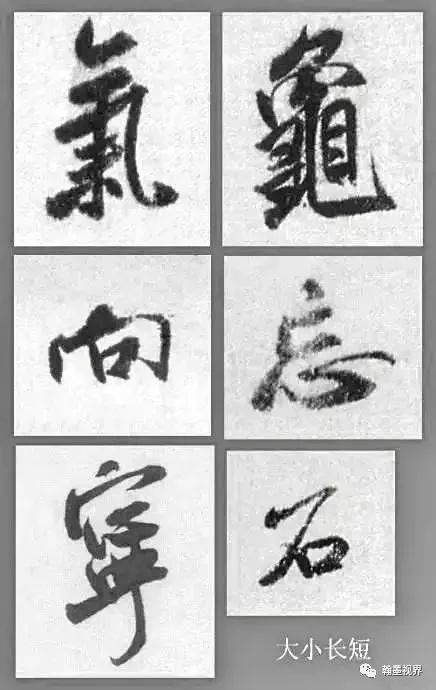 氣 龜
向 忘
寧 石
大小长短
翰墨视界